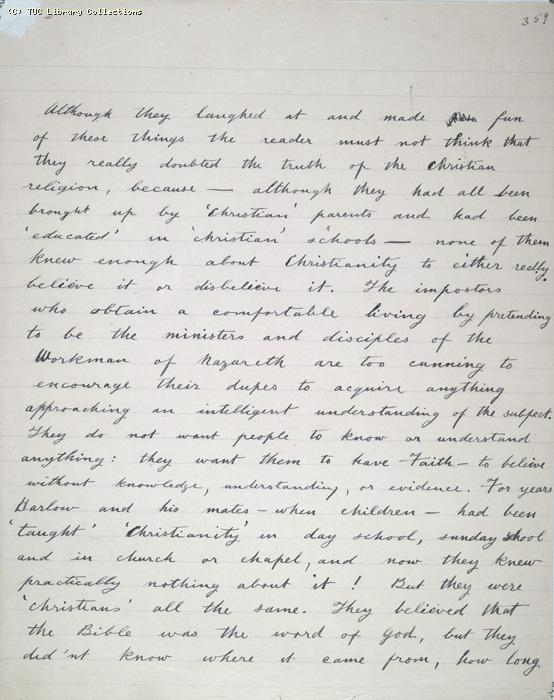 (C) TUC Library Collections
359
Although they laughed at and made fun
of these things the reader must not think that
they really doubted the truth of the Christian
religion, because — although they had all been
brought up by 'Christian' parents and had been
'educated' in 'christian' schools — none of them
knew enough about Christianity to either really
believe it or disbelieve it. The impostors
who obtain a comfortable living by pretending
to be the ministers and disciples of the
Workman of Nazareth are too cunning to
encourage their dupes to acquire anything
approaching an intelligent understanding of the subject.
They do not want people to know or understand
anything: they want them to have Faith – to believe
without knowledge, understanding, or evidence. For years
Harlow and his mates – when children – had been
'taught' 'Christianity' in day school, sunday school
and in church or chapel, and now they knew
practically nothing about it! But they were
'christians' all the same. They believed that
the Bible was the word of God, but they
did'nt know where it came from, how long